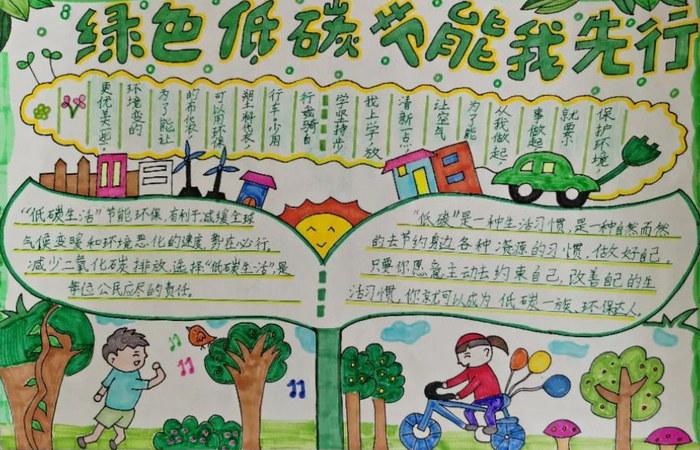 绿色低碳节能我先行
保护环境,
就要
事做起
从我做起,
为了能
让空气
清新一点,
我上学,放
学坚持步
行或骑自
行车,少用
塑料代衣
可以用环保
的布代衣,
为了能让
环境变的
更优美一些。
“低碳生活”节能环保,有利于减缓全球
气候变暖和环境恶化的速度,势在必行。
减少二氧化碳排放,选择“低碳生活”是
每位公民应尽的责任。
“低碳”是一种生活习惯,是一种自然而然
的去节约身边各种资源的习惯,做好自己,
只要你愿意主动去约束自己,改善自己的生
活习惯,你就可以成为低碳一族,环保达人。